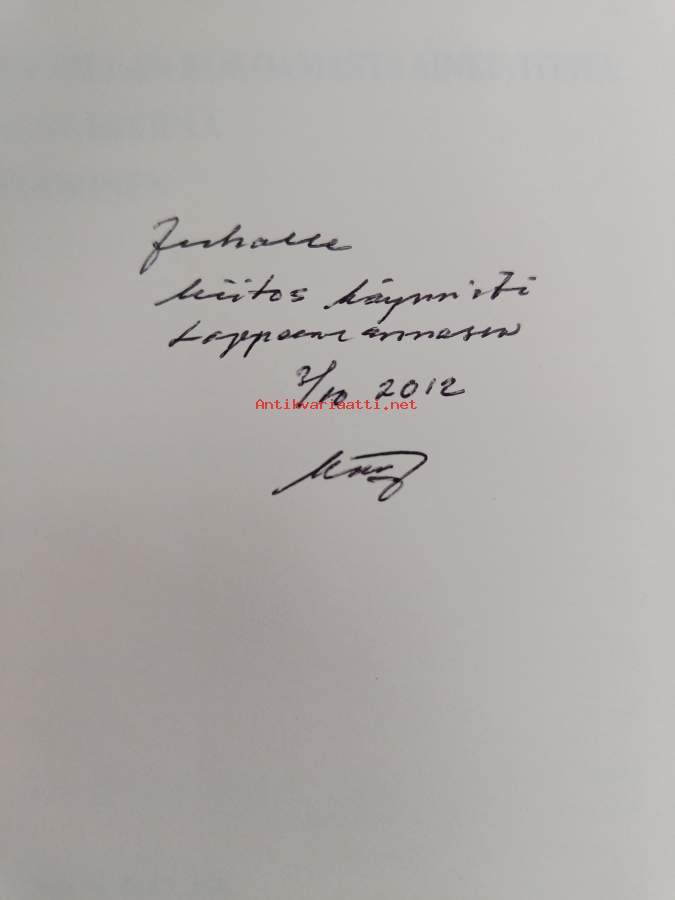 Juhalle
kiitos käynnistä
Lappeenrannassa
3/10 2012
Antikvariaatti.net